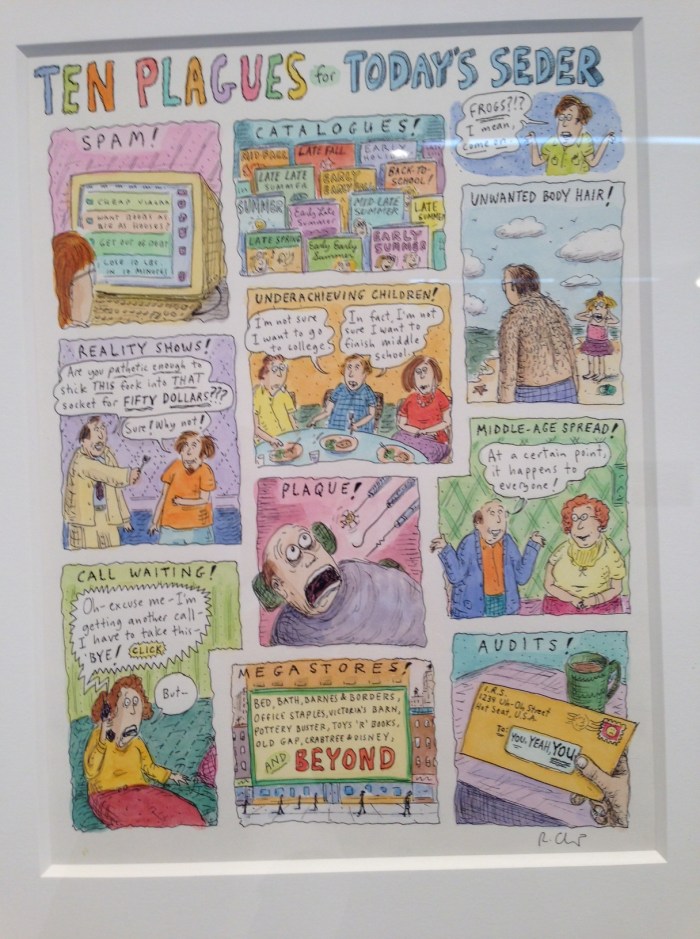 TEN PLAGUES for TODAY'S SEDER
SPAM!
CHEAP VIAGRA
WANT BOOBS AS
BIG AS HOUSES?
GET OUT OF DEBT
LOSE 10 LBS.
IN 10 MINUTES!
CATALOGUES!
MID-FALL
LATE FALL
EARLY
LATE LATE
SUMMER
EARLY
BACK-TO-
SCHOOL!
SUMMER
Early Late
Summer
MID-LATE
SUMMER
LATE
SUMMER
LATE SPRING
Early Early
Summer
EARLY
SUMMER
FROGS?!?
I mean,
come on.
UNWANTED BODY HAIR!
REALITY SHOWS!
Are you pathetic enough to
stick THIS fork into THAT
socket for FIFTY DOLLARS???
Sure! Why not!
UNDERACHIEVING CHILDREN!
I'm not sure
I want to go
to college.
In fact, I'm not
sure I want to
finish middle
school.
MIDDLE-AGE SPREAD!
At a certain point,
it happens to
everyone!
PLAQUE!
CALL WAITING!
Oh- excuse me - I'm
getting another call-
I have to take this-
BYE! CLICK
But-
MEGASTORES!
BED, BATH, BARNES & BORDERS,
OFFICE STAPLES, VICTORIA'S BARN,
POTTERY BUSTER, TOYS 'R' BOOKS,
OLD GAP, CRABTREE & DISNEY,
AND BEYOND
AUDITS!
I.R.S.
1234 Uh-Oh Street
Hot Seat, U.S.A.
To:
YOU. YEAH, YOU.
R. Ch